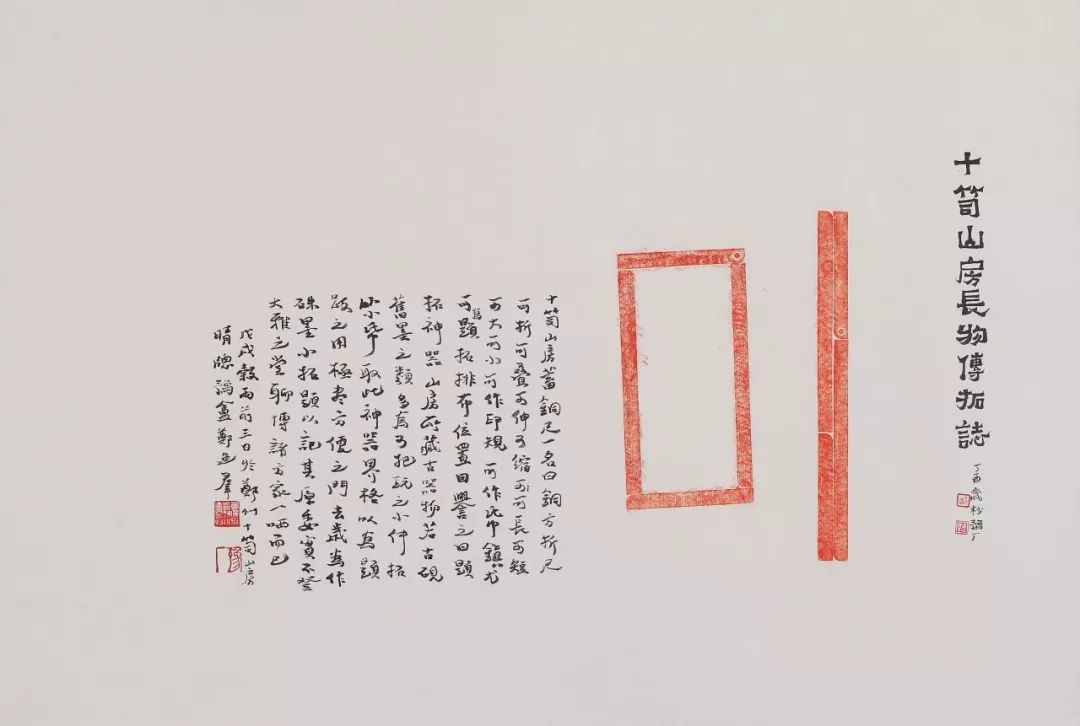 十笥山房長物傳拓誌
丁酉歲杪
十笥山房蓄銅尺一名曰銅方折尺
可折可叠可伸可縮可長可短
可大可小可作印規可作紙鎮尤
可為題拓排布位置因譽之曰題
拓神器山房所藏古器物若古硯
舊墨之類多為可把玩之小件拓
小紙取此神器界格以為題
跋之用極盡方便之門去歲為作
硃墨小拓題以記其原委實不登
大雅之堂聊博諸方家一哂而已
戊戌穀雨前三日於鄭州十笥山房
晴牕